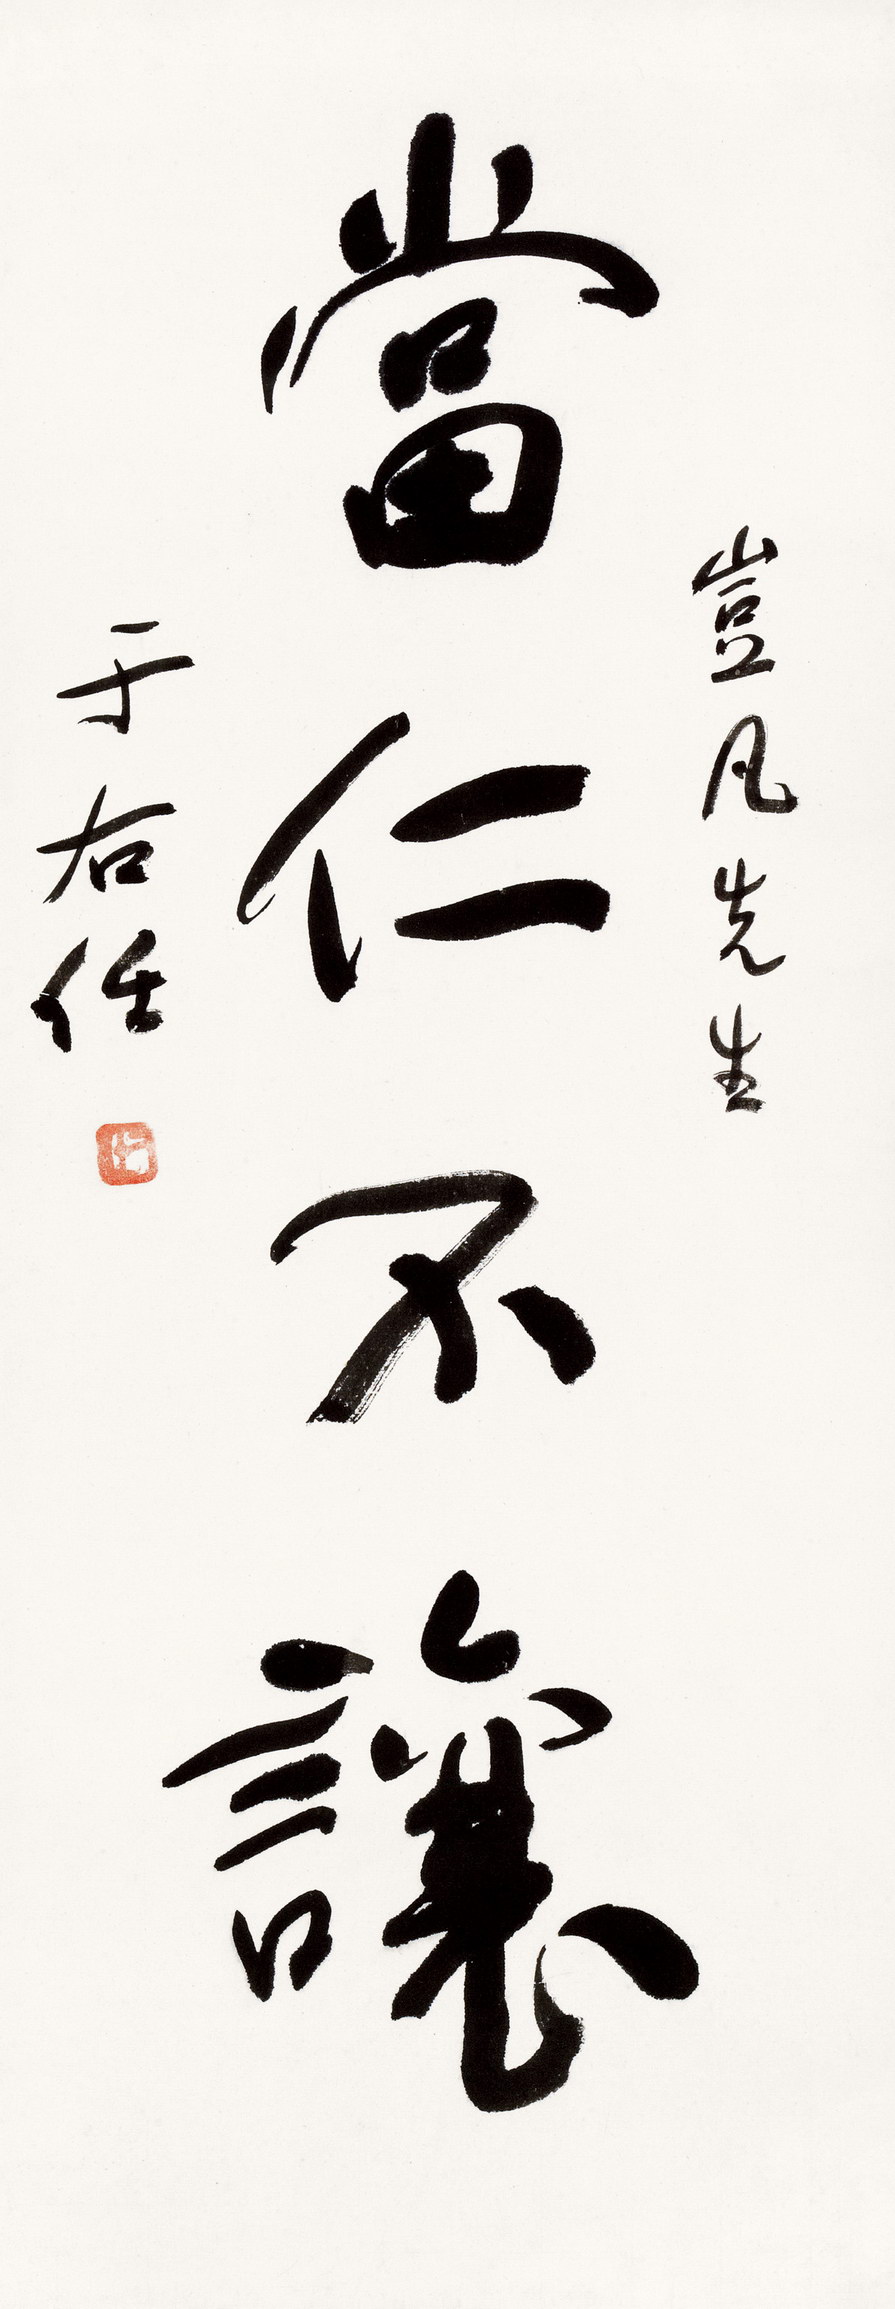 豈凡先生
當仁不讓
于右任